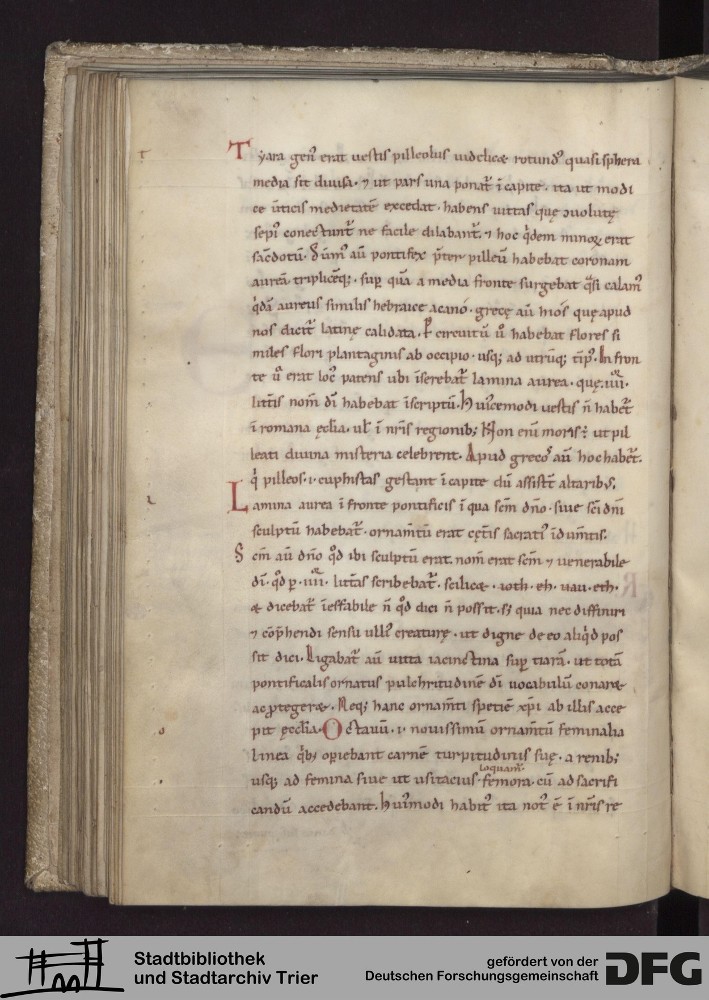 Tyara gen᾽ erat uestis pilleolus uidelicæ rotund᾽ quasi sphera
media sit diuisa · ⁊ ut pars una ponat᷑ ī capite · ita ut modi
ce ūticis medietatē excedat · habens uittas quę ɔuolutę
sepi᾽ conectunt᷑ ne facile dilabant᷑ · ⁊ hoc q̇dem minoꝝ erat
sac̄dotū · pontifex p̄ter pilleū habebat coronam
aureā triplicēq; · suꝑ quā a media fronte surgebat q̄si calam᾽
q̇dā aureus similis hebraice acano · grecę aū quę apud
nos dicit᷑ latinę calidata · circuitū ů habebat flores si
miles flori plantaginis ab occipio · usq; ad utrūq; tīp᾽ · In fron
te ů erat loc᾽ patens ubi īserebat᷑ lamina aurea · quę · iiii ·
litt̄is nom̄ dī habebat īscriptū · Huiꝰcemodi uestis n̄ habet᷑
ī romana ęclia · ul᾽ ī nr̄is regionib; Non enī moris ; ut pil
leati diuina misteria celebrent · Apud greco᾽ aū hoc habet᷑ ·
q̇ pilleos · i · cuphias gestant ī capite dū assistt̄ altarib; ·
Lamina aurea ī fronte pontificis ī qua scm̄ dn̄o · siue scī dn̄i
sculptū habebat᷑ · ornam̄tū erat cęt̄is sacrati᾽ īdum̄tis ·
Scm̄ aū dn̄o q̊d ibi sculptū erat · nom̄ erat scm̄ ⁊ uenerabile
dī · q̊d ꝑ · iiii · litt̄as scribebat᷑ · scilicæ · ioth · eh · uau · eth ·
& dicebat᷑ īeffabile n̄ q̊d dici n̄ possit · s; quia nec diffiniri
⁊ cōp̄hendi sensu ulli᾽ creaturę · ut digne de eo aliq̇d pos
sit dici · Ligabat᷑ aū uitta iacinctina suꝑ tiarā · ut totā
pontificalis ornatus pulchritudinē dī uocabulū conaræ
ac ꝓtegeræ · Neq; hanc ornam̄ti spetiē xp̄i ab illis acce
pit ęcclia · Octauū · i · nouissimū ornam̄tū feminalia
linea q̇b; oꝑiebant carnē turpitudinis suę · a renib;
loquam᷑ ·
usq; ad femina siue ut usitacius · femora · cū ad sacrifi
candū accedebant · Hui᾽modi habit᾽ ita not᾽ ē ī nr̄is re
Stadtbibliothek
und Stadtarchiv Trier
gefördert von der
Deutschen Forschungsgemeinschaft
DFG